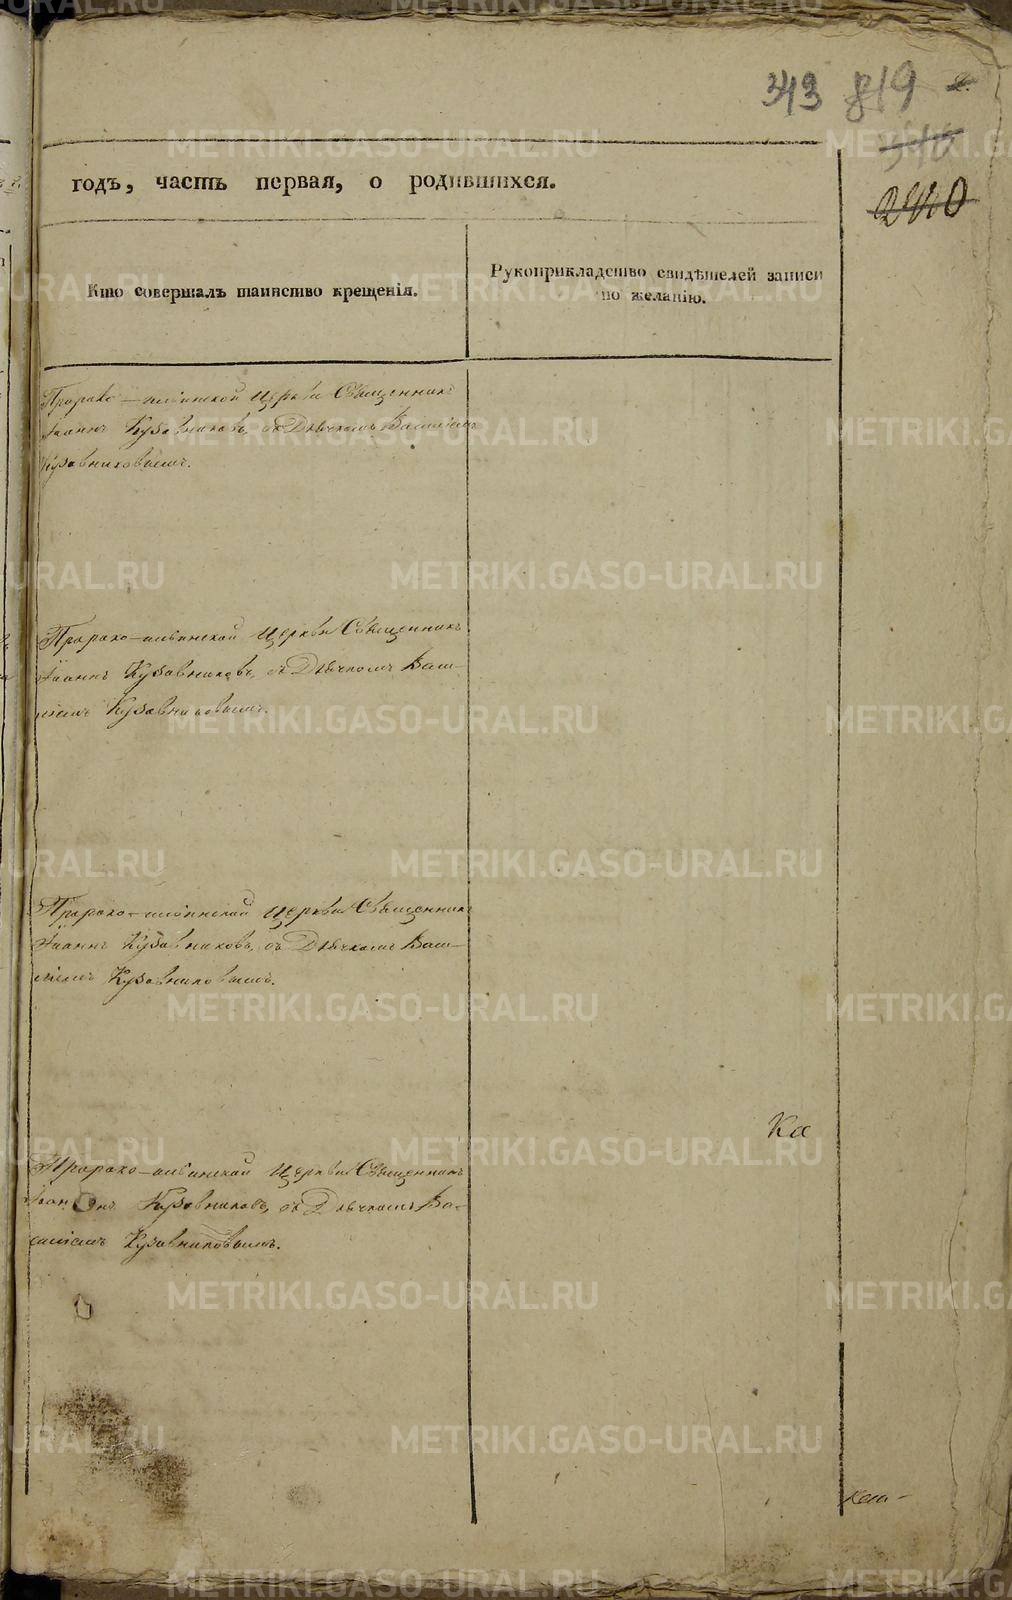 343 819 2.
годъ, часть первая, о родившихся.
Кто совершалъ таинство крещенія.
Рукоприкладство свидѣтелей записи
по желанію.
Пророко-ильинской Церкви Священникъ
Іоаннъ Кузовниковъ, съ Дьячкомъ Василіемъ
Кузовниковымъ.
Пророко-ильинской Церкви Священникъ
Іоаннъ Кузовниковъ, съ Дьячкомъ Васи-
ліемъ Кузовниковымъ.
Пророко-ильинской Церкви Священникъ
Іоаннъ Кузовниковъ, съ Дьячкомъ Васи-
ліемъ Кузовниковымъ.
Ка
Пророко-ильинской Церкви Священникъ
Іоаннъ Кузовниковъ, съ Дьячкомъ Ва-
силіемъ Кузовниковымъ.
METRIKI.GASO-URAL.RU